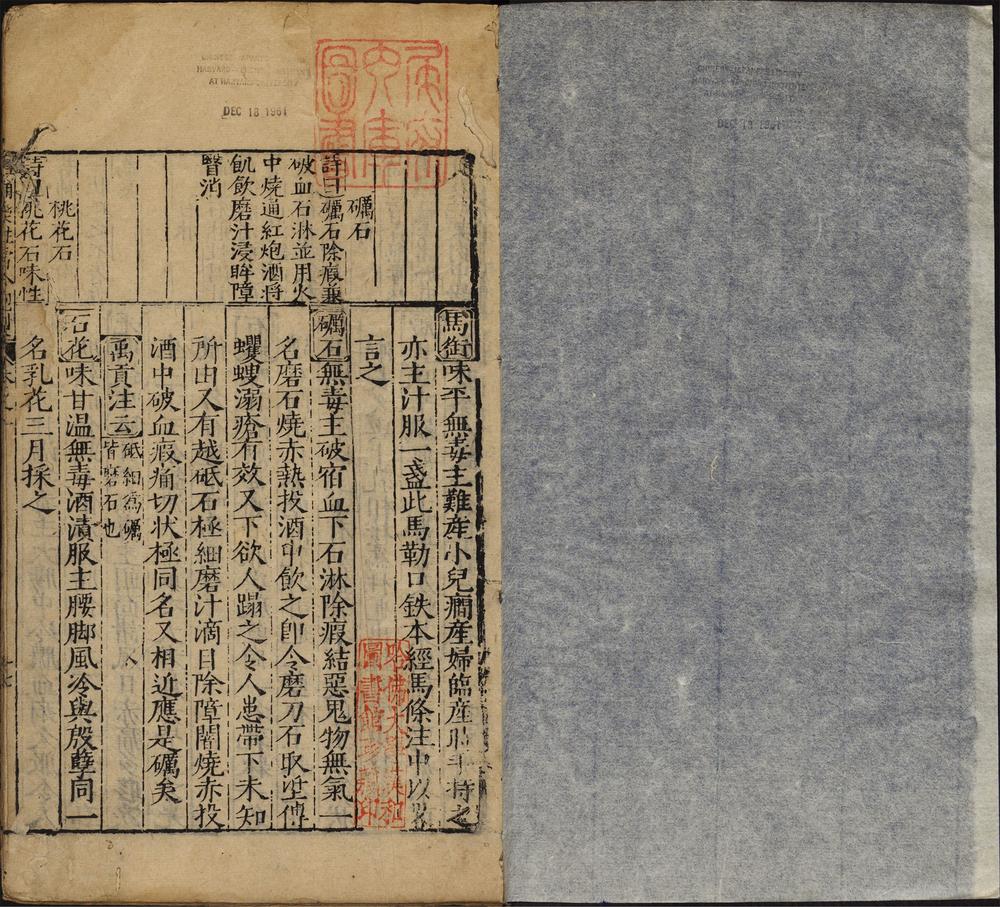 DEC 18 1961
礪石
詩曰礪石除瘕兼
破血石淋並用火
中燒通紅炮酒將
飢飲磨汁浸眸障
瞖消
桃花石
詩曰桃花石味性
馬銜味平無毒主難產小兒癇產婦臨產時手持之
亦主汁服一盞此馬勒口鉄本經馬條注中以畧
言之
礪石無毒主破宿血下石淋除瘕結惡鬼物無氣一
名磨石燒赤熱投酒中飲之即今磨刀石取垽傅
蠷螋溺瘡有效又下欲人蹋之令人患帶下未知
所由又有越砥石極細磨汁滴目除障闇燒赤投
酒中破血瘕痛切状極同名又相近應是礪矣
禹貢注云砥細為礪
皆磨石也
石花味甘温無毒酒漬服主腰脚風冷與殷孽同一
名乳花三月採之
哈佛大學漢和
圖書館珍藏印
DEC 18 1961